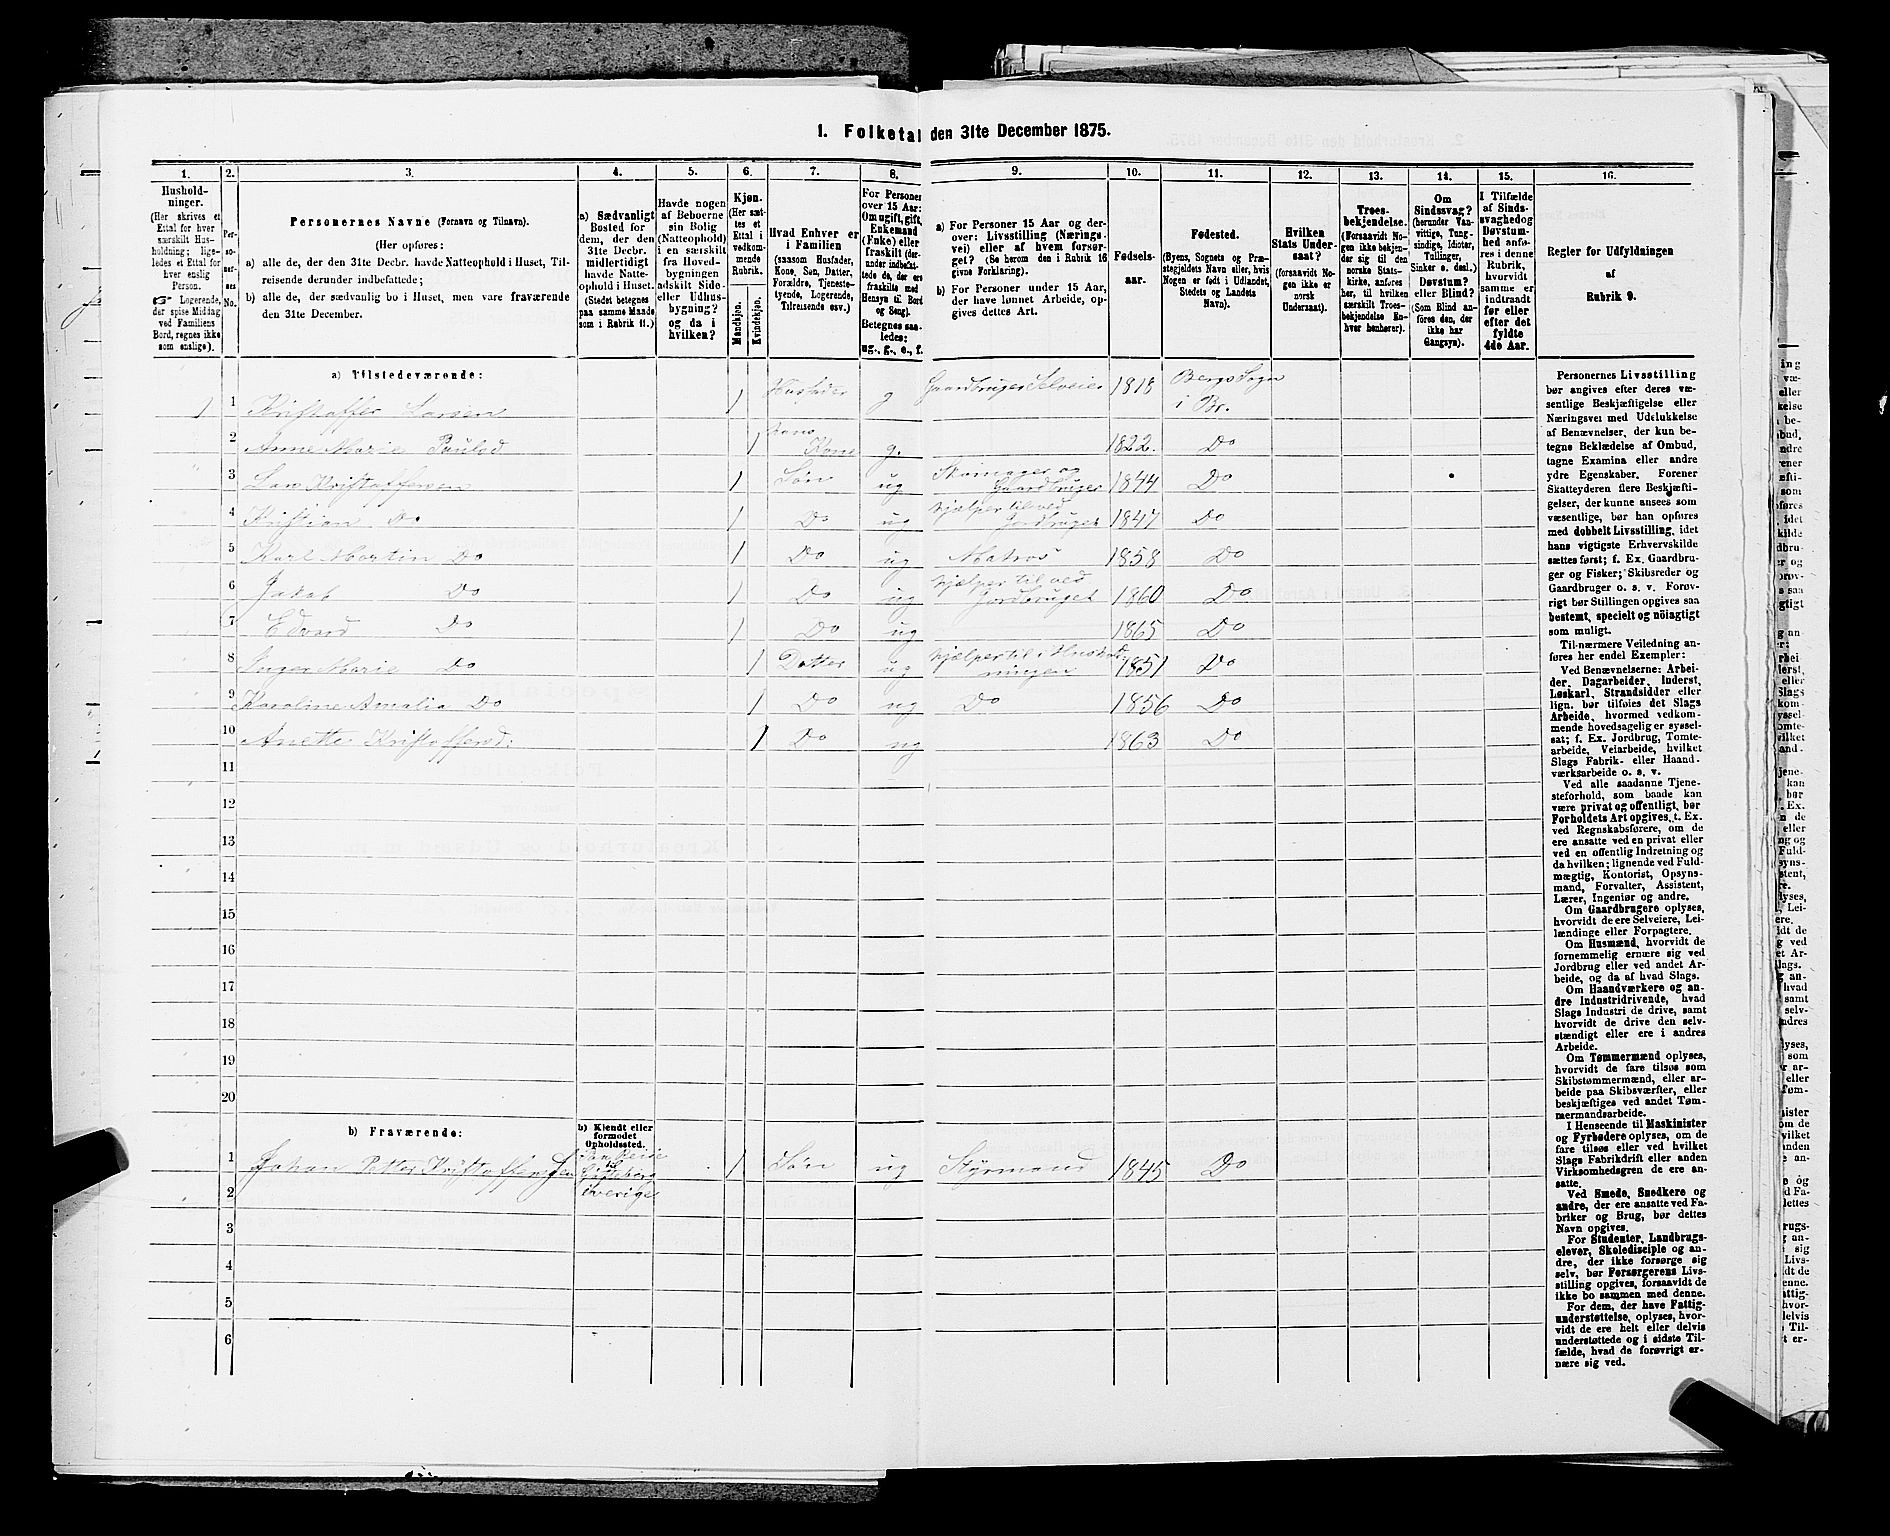 1. Folketal den 31te December 1875.
1. 2. 3. 4. 5. 6. 7. 8. 9. 10. 11. 12. 13. 14. 15. 16.
Hushold-
ninger.
(Her skrives et
Ettal for hver
særskilt Hus-
holdning; lige-
ledes et Ettal for
hver enslig
Person.
Logerende,
der spise Middag
ved Familiens
Bord, regnes ikke
som enslige).
Per-
so-
ner-
nes
No.
Personernes Navne (Fornavn og Tilnavn).
(Her opføres:
a) alle de, der den 31te Decbr. havde Natteophold i Huset, Til-
reisende derunder indbefattede;
b) alle de, der sædvanlig bo i Huset, men vare fraværende
den 31te December.
a) Sædvanligt
Bosted for
dem, der den
31te Decbr.
midlertidigt
havde Natte-
ophold i Huset.
(Stedet betegnes
paa samme Maade
som i Rubrik 11.)
Havde nogen
af Beboerne
sin Bolig
(Natteophold)
i en særskilt
fra Hoved-
bygningen
adskilt Side-
eller Udhus-
bygning?
og da i
hvilken?
Kjøn.
(Her sæt-
tes et
Ettal i
vedkom-
mende
Rubrik.
Mandkjøn.
Kvindekjøn.
Hvad Enhver er
i Familien
(saasom Husfader,
Kone, Søn, Datter,
Forældre, Tjeneste-
tyende, Logerende,
Tilreisende osv.)
For Personer
over 15 Aar:
Om ugift, gift,
Enkemand
(Enke) eller
fraskilt (der-
under indbefat-
tede de, der ere
fraskilte med
Hensyn til Bord
og Seng).
Betegnes saa-
ledes:
ug., g., e., f.
a) For Personer 15 Aar og der-
over: Livsstilling (Nærings-
vei) eller af hvem forsør-
get? (Se herom den i Rubrik 16
givne Forklaring).
b) For Personer under 15 Aar,
der have lønnet Arbeide, op-
gives dettes Art.
Fødsels-
aar.
Fødested.
(Byens, Sognets og Præ-
stegjeldets Navn eller, hvis
Nogen er født i Udlandet,
Stedets og Landets
Navn).
Hvilken
Stats Under-
saat?
(forsaavidt No-
gen ikke er
norsk
Undersaat).
Troes-
bekjendelse.
(Forsaavidt No-
gen ikke bekjen-
der sig til den
norske Stats-
kirke, anføres
her, til hvilken
særskilt Troes-
bekjendelse En-
hver henhører).
Om
Sindssvag?
(herunder Van-
vittige, Tung-
sindige, Idioter,
Tullinger,
Sinker o. desl.)
Døvstum?
eller Blind?
(Som Blind an-
føres den, der
ikke har
Gangsyn).
I Tilfælde
af Sinds-
svaghed og
Døvstum-
hed anfø-
res i denne
Rubrik,
hvorvidt
samme er
indtraadt
før eller
efter det
fyldte
4de Aar.
Regler for Udfyldningen
af
Rubrik 9.
a) Tilstedeværende:
1 1 Kristoffer Larsen 1 Husfader g Gaardbruger Selveier 1818 Bergs Sogn i Br.
2 Anne Marie Paulsd 1 Hans Kone g. 1822. Do
3 Lars Kristoffersen 1 Søn ug og Gaardbruger 1844 Do
4 Kristian Do 1 Do ug hjælper til ved Jordbruget 1847 Do
5 Karl Martin Do 1 Do ug Matros 1858 Do
6 Jakob Do 1 Do ug hjælper til ved Jordbruget 1860 Do
7 Edvard Do 1 Do ug 1865 Do
8 Inger Marie Do 1 Datter ug hjælper til i Hushold-
ningen 1851 Do
9 Karoline Amalia Do 1 Do ug Do 1856 Do
10 Anette Kristoffersd: 1 Do ug 1863 Do
11
12
13
14
15
16
17
18
19
20
b) Fraværende:
b) Kjendt eller
formodet
Opholdssted.
1 Johan Petter Kristoffersen 1 Søn ug Styrmand 1845 Do
2
3
4
5
6
Personernes Livsstilling
bør angives efter deres væ-
sentlige Beskjæftigelse eller
Næringsvei med Udelukkelse
af Benævnelser, der kun be-
tegne Beklædelse af Ombud,
tagne Examina eller andre
ydre Egenskaber. Forener
Skatteyderen flere Beskjæfti-
gelser, der kunne ansees som
væsentlige, bør han opføres
med dobbelt Livsstilling, idet
hans vigtigste Erhvervskilde
sættes først; f. Ex. Gaardbru-
ger og Fisker; Skibsreder og
Gaardbruger o. s. v. Forøv-
rigt bør Stillingen opgives saa
bestemt, specielt og nöiagtigt
som muligt.
Til nærmere Veiledning an-
føres her endel Exempler:
Ved Benævnelserne: Arbei-
der, Dagarbeider, Inderst,
Løskarl, Strandsidder eller
lign. bør tilføies det Slags
Arbeide, hvormed vedkom-
mende hovedsagelig er syssel-
sat; f. Ex. Jordbrug, Tomte-
arbeide, Veiarbeide, hvilket
Slags Fabrik- eller Haand-
værksarbeide o. s. v.
Ved alle saadanne Tjene-
steforhold, som baade kan
være privat og offentligt, bør
Forholdets Art opgives, t. Ex.
ved Regnskabsførere, om de
ere ansatte ved en privat eller
ved en offentlig Indretning og
da hvilken; lignende ved Fuld-
mægtig, Kontorist, Opsyns-
mand, Forvalter, Assistent,
Lærer, Ingeniør og andre.
Om Gaardbrugere oplyses,
hvorvidt de ere Selveiere, Lei-
lændinge eller Forpagtere.
Om Husmænd, hvorvidt de
fornemmelig ernære sig ved
Jordbrug eller ved andet Ar-
beide, og da af hvad Slags.
Om Haandværkere og an-
dre Industridrivende, hvad
Slags Industri de drive, samt
hvorvidt de drive den selv-
stændigt eller ere i andres
Arbeide.
Om Tømmermænd oplyses,
hvorvidt de fare tilsøs som
Skibstømmermænd, eller ar-
beide paa Skibsværfter, eller
beskjæftiges ved andet Tøm-
mermandsarbeide.
I Henseende til Maskinister
og Fyrbødere oplyses, om de
fare tilsøs eller ved hvilket
Slags Fabrikdrift eller anden
Virksomhedsgren de ere an-
satte.
Ved Smede, Snedkere og
andre, der ere ansatte ved Fa-
briker og Brug, bør dettes
Navn opgives.
For Studenter, Landbrugs-
elever, Skoledisciple og an-
dre, der ikke forsørge sig
selv, bør Forsørgerens Livs-
stilling opgives, forsaavidt de
ikke bo sammen med denne.
For dem, der have Fattig-
understøttelse, oplyses, hvor-
vidt de ere helt eller delvis
understøttede og i sidste Til-
fælde, hvad de forøvrigt er-
nære sig ved.